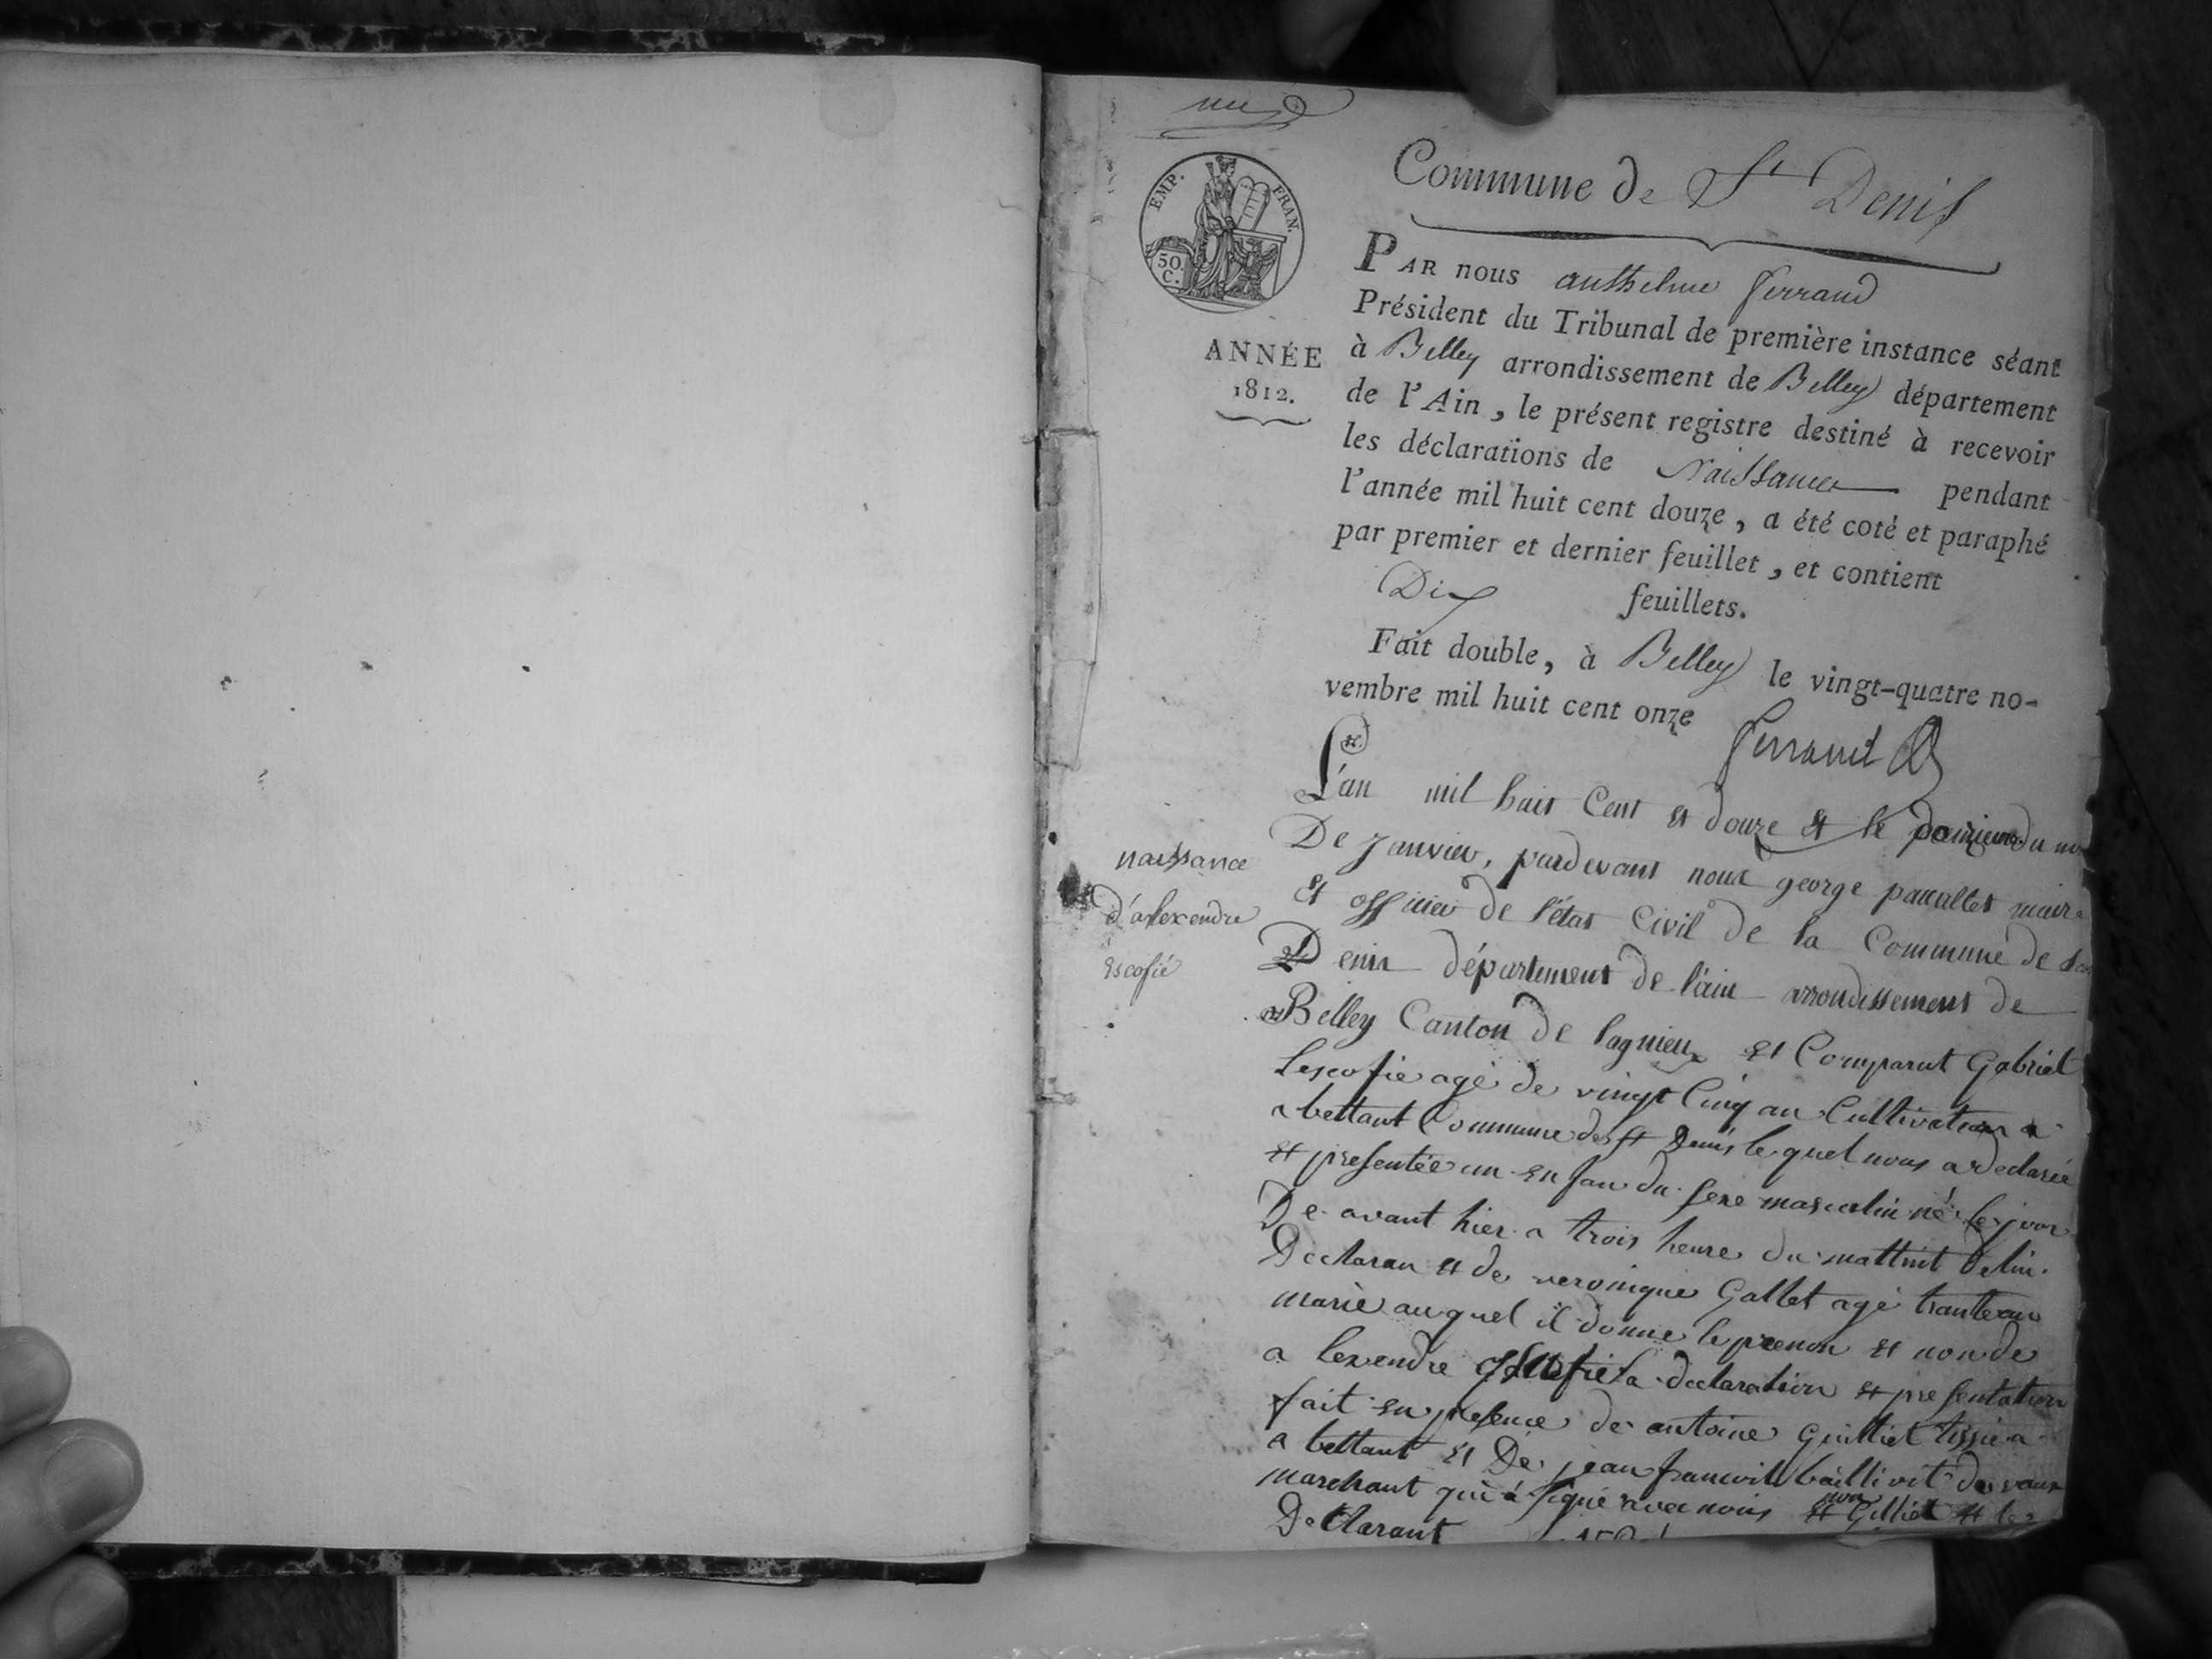 une
Commune de St Denis
EMP. FRAN.
50 C.
PAR nous anthelme ferrand
Président du Tribunal de première instance séant
ANNÉE
1812.
à Belley arrondissement de Belley département
de l'Ain, le présent registre destiné à recevoir
les déclarations de Naissance pendant
l'année mil huit cent douze, a été coté et paraphé
par premier et dernier feuillet, et contient
Dix feuillets.
Fait double, à Belley le vingt-quatre no-
vembre mil huit cent onze
ferrand
L'an mil huit Cent et douze et le du
De janvier, pardevant nous george maire
naissance
d'alexendre
Escofié
et officier de l'état Civil de la Commune de
Denis département de l'ain arrondissement de
Belley Canton de lagnieu et Comparut Gabriel
Lescofie agé de vingt Cinq an Cultivateur a
a bettant Commune de st Denis le quel nous a declarée
et presentée un enfan du sexe masculin né le jour
De avant hier a trois heure du mattint de lui
Declaran et de veronique Gallet agé trante an
marié au quel il donne le prenon et non de
a lexendre la declaration et presentation
fait en presence de antoine Guilliet tissie a
a bettant et De jean francois de vaux
marchant qui a signé avec nous et non Gilliet et le
Declarant